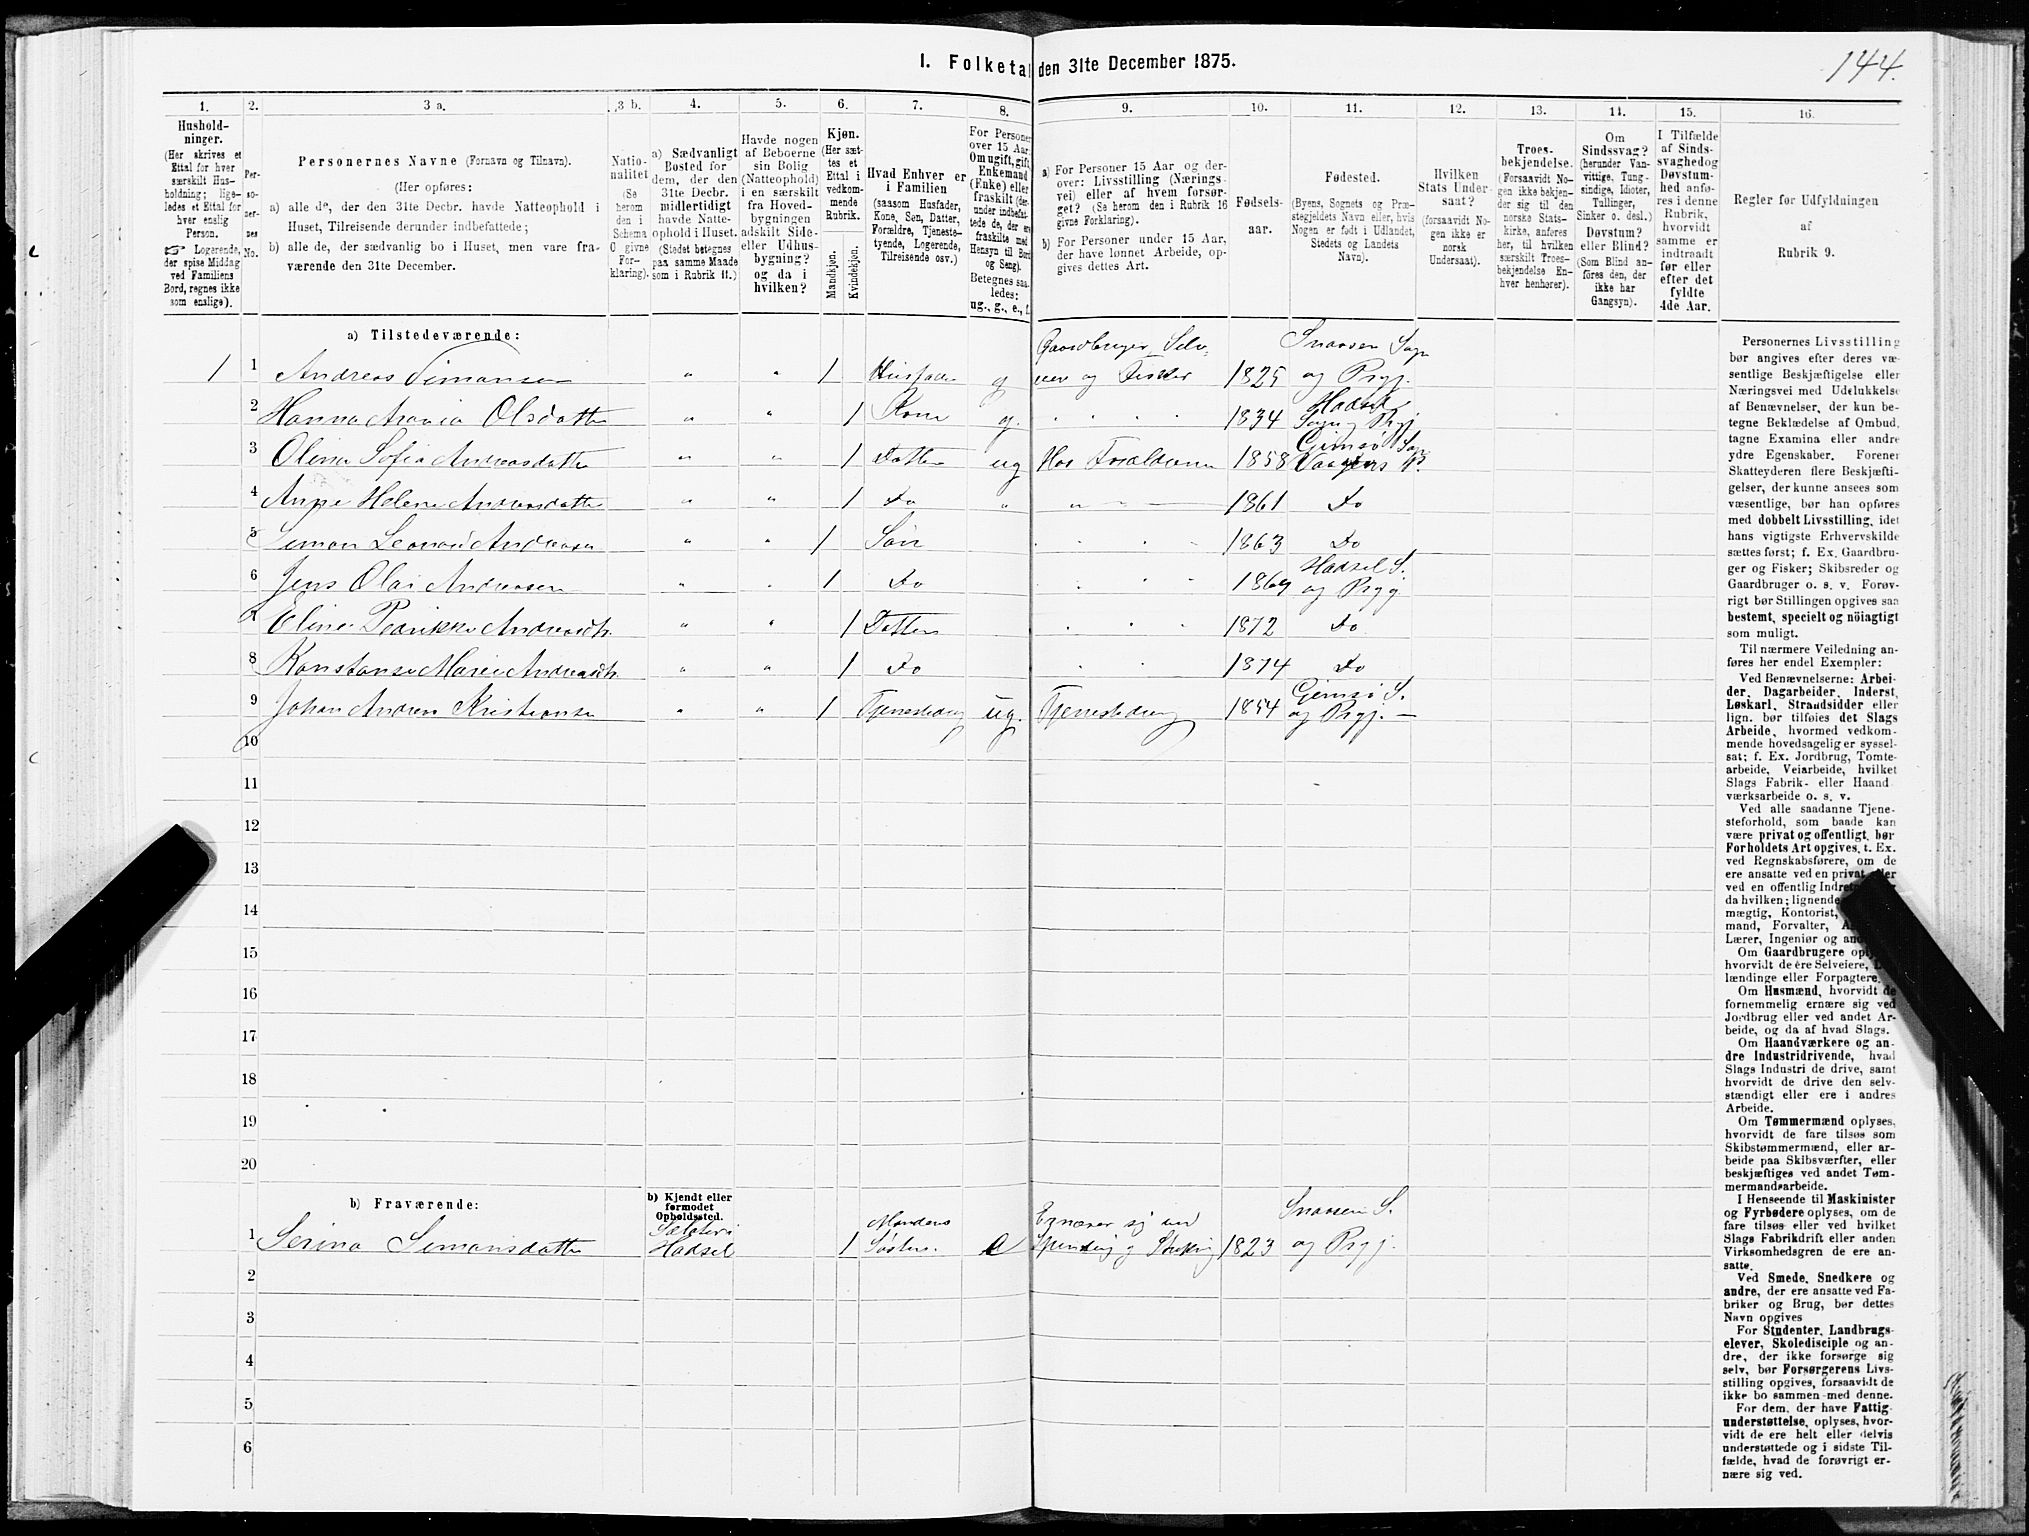 144.
I. Folketal den 31te December 1875.
1. 2. 3 a. 3 b. 4. 5. 6. 7. 8. 9. 10. 11. 12. 13. 14. 15. 16.
Hushold-
ninger.
(Her skrives et
Ettal for hver
særskilt Hus-
holdning; lige-
ledes et Ettal for
hver enslig
Person.
☞ Logerende,
der spise Middag
ved Familiens
Bord, regnes ikke
som enslige).
Per-
so-
ner-
nes
No.
Personernes Navne (Fornavn og Tilnavn).
(Her opføres:
a) alle de, der den 31te Decbr. havde Natteophold i
Huset, Tilreisende derunder indbefattede;
b) alle de, der sædvanlig bo i Huset, men vare fra-
værende den 31te December.
Natio-
nalitet
(Se
herom
den i
Schema
O givne
For-
klaring).
a) Sædvanligt
Bosted for
dem, der den
31te Decbr.
midlertidigt
havde Natte-
ophold i Huset.
(Stedet betegnes
paa samme Maade
som i Rubrik 11.)
Havde nogen
af Beboerne
sin Bolig
(Natteophold)
i en særskilt
fra Hoved-
bygningen
adskilt Side-
eller Udhus-
bygning?
og da i
hvilken?
Kjøn.
(Her sæt-
tes et
Ettal i
vedkom-
mende
Rubrik.
Mandkjøn.
Kvindekjøn.
Hvad Enhver er
i Familien
(saasom Husfader,
Kone, Søn, Datter,
Forældre, Tjeneste-
tyende, Logerende,
Tilreisende osv.)
For Personer
over 15 Aar:
Om ugift, gift,
Enkemand
(Enke) eller
fraskilt (der-
under indbefat-
tede de, der ere
fraskilte med
Hensyn til Bord
og Seng).
Betegnes saa-
ledes:
ug., g., e., f.
a) For Personer 15 Aar og der-
over: Livsstilling (Nærings-
vei) eller af hvem forsør-
get? (Se herom den i Rubrik 16
givne Forklaring).
b) For Personer under 15 Aar,
der have lønnet Arbeide, op-
gives dettes Art.
Fødsels-
aar.
Fødested.
(Byens, Sognets og Præ-
stegjeldets Navn eller, hvis
Nogen er født i Udlandet,
Stedets og Landets
Navn).
Hvilken
Stats Under-
saat?
(forsaavidt No-
gen ikke er
norsk
Undersaat).
Troes-
bekjendelse.
(Forsaavidt No-
gen ikke bekjen-
der sig til den
norske Stats-
kirke, anføres
her, til hvilken
særskilt Troes-
bekjendelse En-
hver henhører).
Om
Sindssvag?
(herunder Van-
vittige, Tung-
sindige, Idioter,
Tullinger,
Sinker o. desl.)
Døvstum?
eller Blind?
(Som Blind an-
føres den, der
ikke har
Gangsyn).
I Tilfælde
af Sinds-
svaghed og
Døvstum-
hed anfø-
res i denne
Rubrik,
hvorvidt
samme er
indtraadt
før eller
efter det
fyldte
4de Aar.
Regler for Udfyldningen
af
Rubrik 9.
a) Tilstedeværende:
1 1 Andreas Simonsen " " 1 Husfader g Gaardbruger Selv-
eier og Fisker 1825 Snaasen Sogn
og Prgj.
2 Hanna Maria Olsdatter " " 1 Kone g. " " " 1834 Hadsel
Sogn og Prgj
3 Olina Sofia Andreasdatter " " 1 Datter ug Hos Forældrene 1858 Gimsø Sogn
Vaagens
4 Anne Helene Andreasdatter " " 1 Do " " 1861 Do
5 Simon Leonard Andreasen " " 1 Søn " " " 1863 Do
6 Jens Olai Andreasen " " 1 Do " " 1869 Hadsel S.
og Prgj
7 Eline Andreasdtr. " " 1 Datter " " " 1872 Do
8 Konstanse Marie Andreasdtr. " " 1 Do " " 1874 Do
9 Johan Andreas Kristiansen " " 1 Tjenestedreng ug. Tjenestedreng 1854 Gimsø S.
og Prgj. —
10
11
12
13
14
15
16
17
18
19
20
b) Fraværende:
b) Kjendt eller
formodet
Opholdssted.
1 Serina Simonsdatter Hadsel 1 Mandens
Søster. e Ernærer sig ved
Spinding og Strikking 1823 Snaasen S.
og Prgj.
2
3
4
5
6
Personernes Livsstilling
bør angives efter deres væ-
sentlige Beskjæftigelse eller
Næringsvei med Udelukkelse
af Benævnelser, der kun be-
tegne Beklædelse af Ombud,
tagne Examina eller andre
ydre Egenskaber. Forener
Skatteyderen flere Beskjæfti-
gelser, der kunne ansees som
væsentlige, bør han opføres
med dobbelt Livsstilling, idet
hans vigtigste Erhvervskilde
sættes først; f. Ex. Gaardbru-
ger og Fisker; Skibsreder og
Gaardbruger o. s. v. Forøv-
rigt bør Stillingen opgives saa
bestemt, specielt og nöiagtigt
som muligt.
Til nærmere Veiledning an-
føres her endel Exempler:
Ved Benævnelserne: Arbei-
der, Dagarbeider, Inderst,
Løskarl, Strandsidder eller
lign. bør tilføies det Slags
Arbeide, hvormed vedkom-
mende hovedsagelig er syssel-
sat; f. Ex. Jordbrug, Tomte-
arbeide, Veiarbeide, hvilket
Slags Fabrik- eller Haand-
værksarbeide o. s. v.
Ved alle saadanne Tjene-
steforhold, som baade kan
være privat og offentligt, bør
Forholdets Art opgives, t. Ex.
ved Regnskabsførere, om de
ere ansatte ved en privat eller
ved en offentlig
da hvilken; lignende
mægtig, Kontorist,
mand, Forvalter,
Lærer, Ingeniør og
Om Gaardbrugere
hvorvidt de ere Selveiere,
lændinge eller Forpagtere.
Om Husmænd, hvorvidt de
fornemmelig ernære sig ved
Jordbrug eller ved andet Ar-
beide, og da af hvad Slags.
Om Haandværkere og an-
dre Industridrivende, hvad
Slags Industri de drive, samt
hvorvidt de drive den selv-
stændigt eller ere i andres
Arbeide.
Om Tømmermænd oplyses,
hvorvidt de fare tilsøs som
Skibstømmermænd, eller ar-
beide paa Skibsværfter, eller
beskjæftiges ved andet Tøm-
mermandsarbeide.
I Henseende til Maskinister
og Fyrbødere oplyses, om de
fare tilsøs eller ved hvilket
Slags Fabrikdrift eller anden
Virksomhedsgren de ere an-
satte.
Ved Smede, Snedkere og
andre, der ere ansatte ved Fa-
briker og Brug, bør dettes
Navn opgives
For Studenter, Landbrugs-
elever, Skoledisciple og an-
dre, der ikke forsørge sig
selv, bør Forsørgerens Livs-
stilling opgives, forsaavidt de
ikke bo sammen med denne.
For dem, der have Fattig-
understøttelse, oplyses, hvor-
vidt de ere helt eller delvis
understøttede og i sidste Til-
fælde, hvad de forøvrigt er-
nære sig ved.